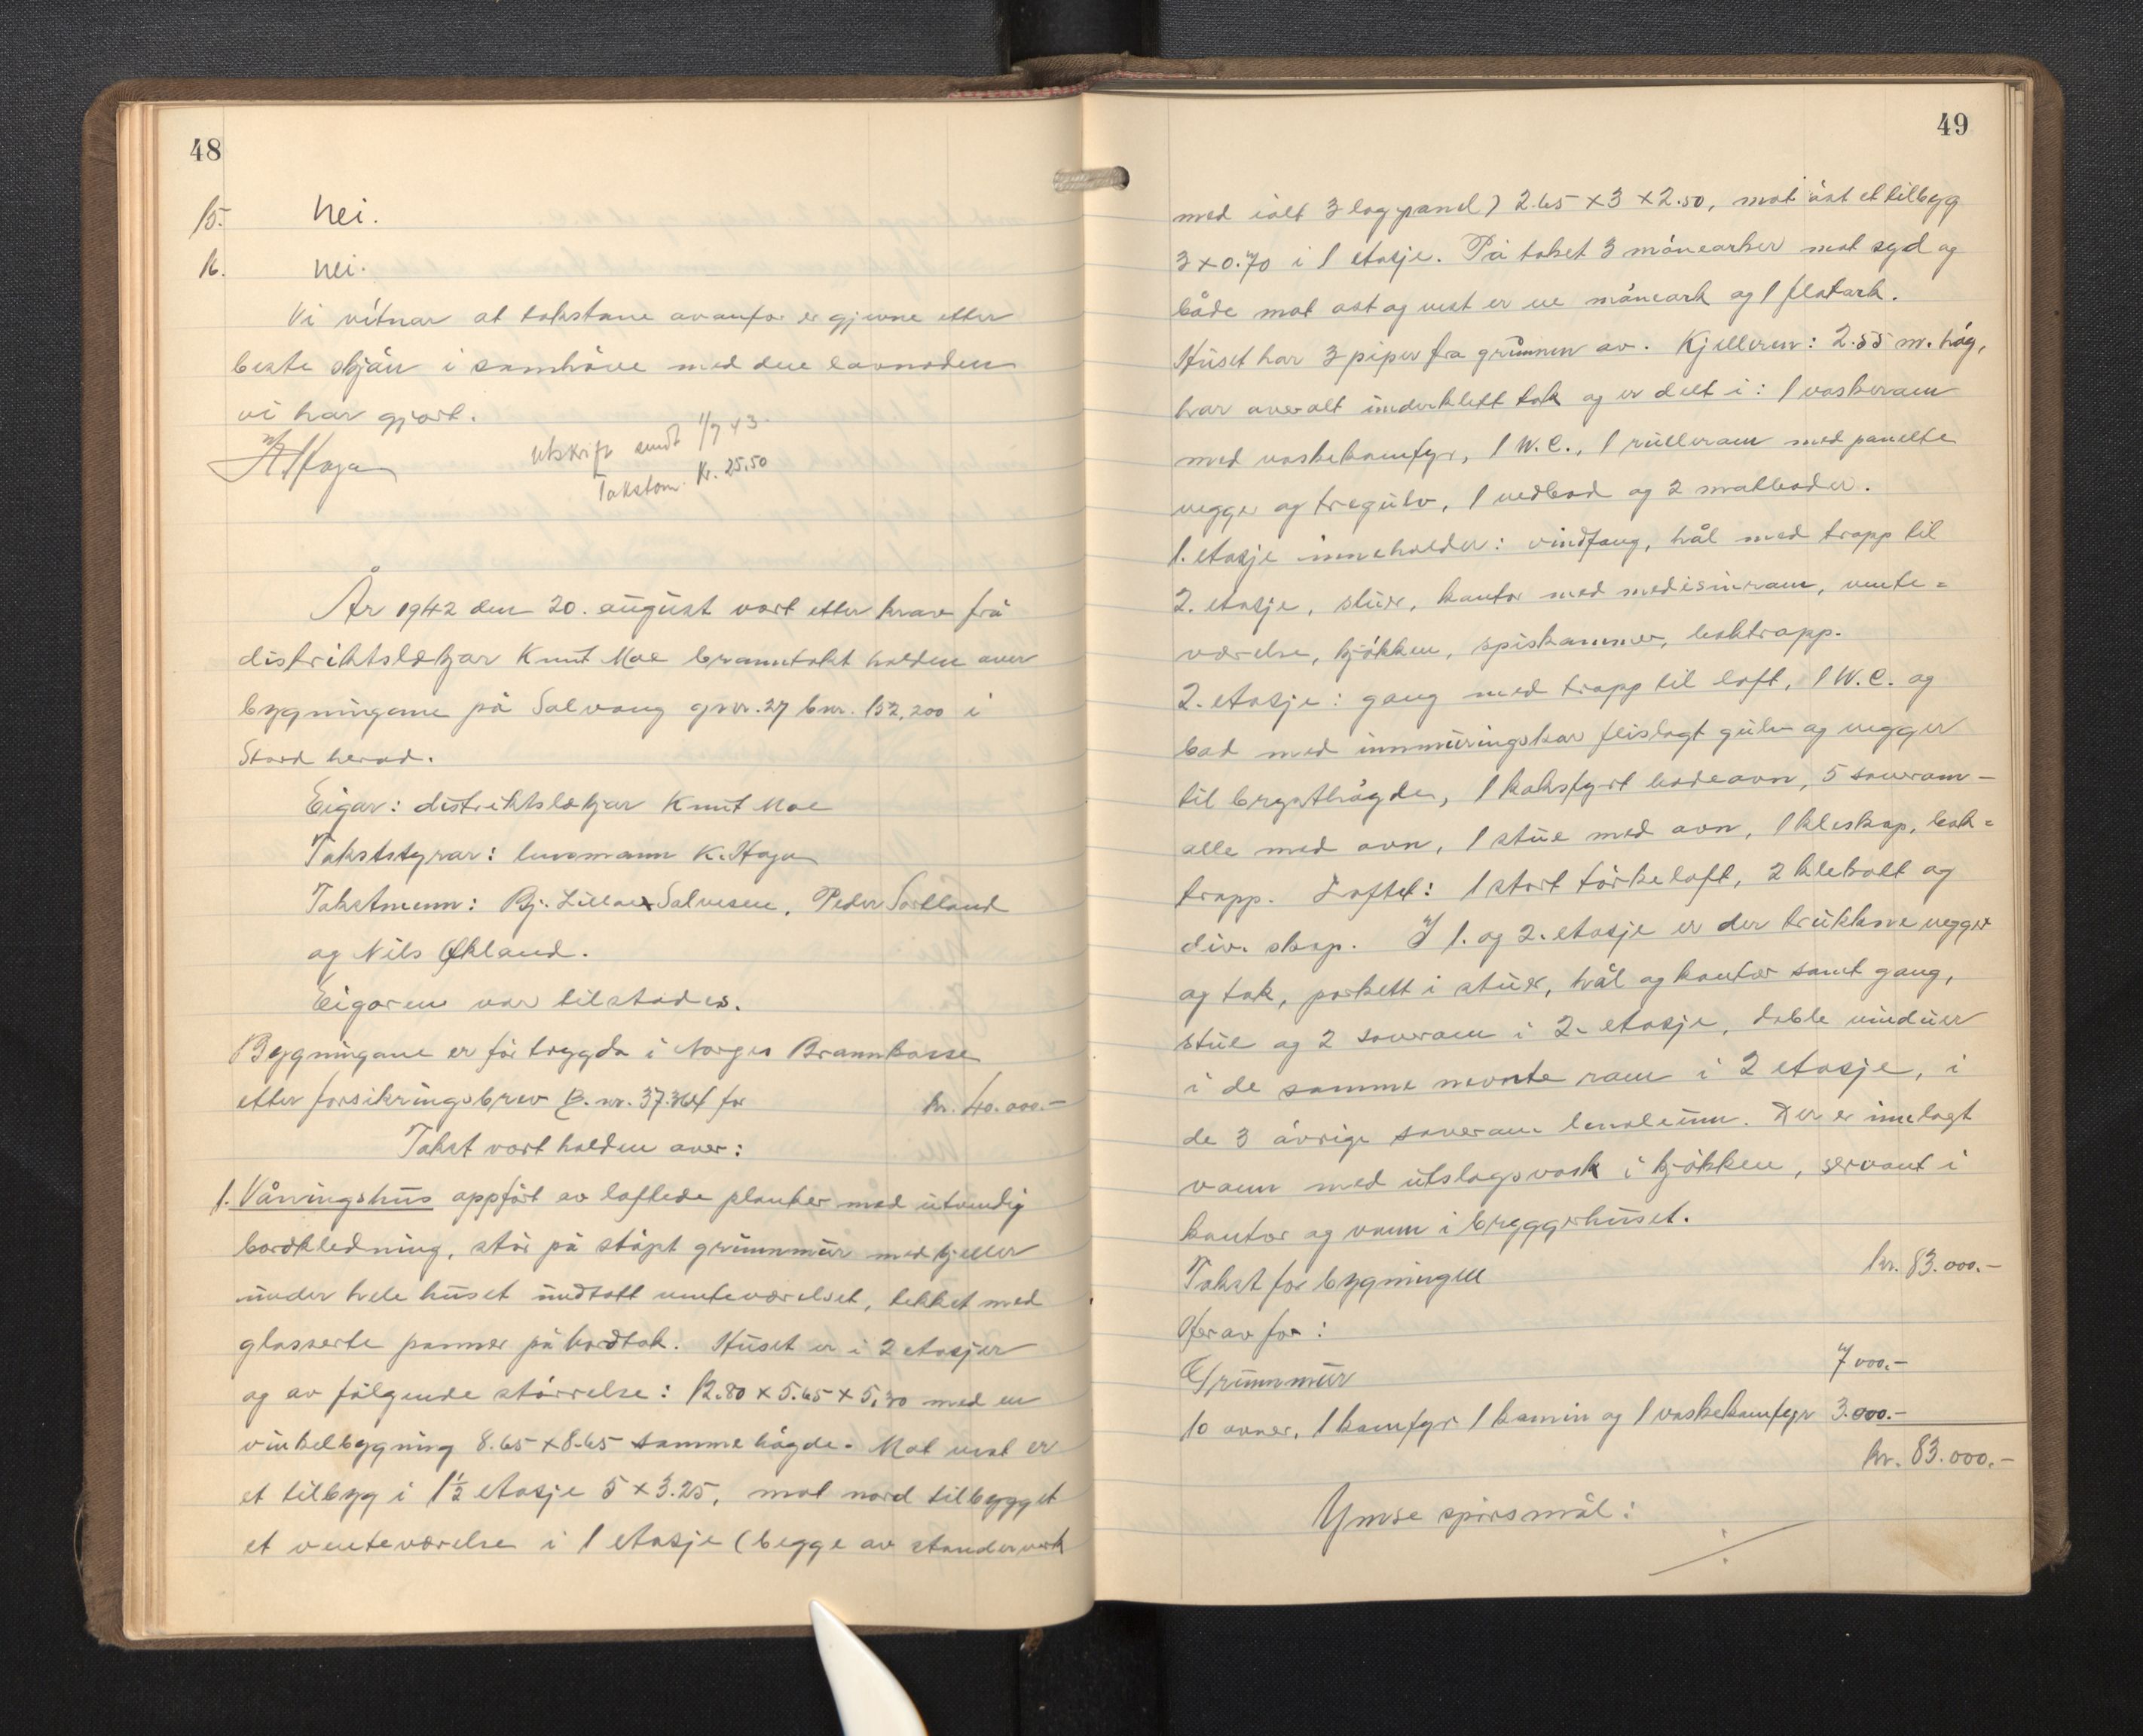 48
15. Nei.
16. Nei.
Vi vitnar at takstane ovanfor er gjevne etter
beste skjön i samhöve med den lovnaden
vi har gjort.
K. Haga
Utskrift sendt 1/9 43.
Takstom. Kr. 25.50
År 1942 den 20. august vart etter krav frå
distriktslækjar Knut Moe branntakst halden over
bygningane på Solvang gnr. 27 bnr. 152,200 i
Stord herad.
Eigar: distriktslækjar Knut Moe
Takststyrar: lensmann K. Haga
Takstmenn: Bj. Lillaas Salvesen, Peder Sortland
og Nils Økland.
Eigaren var tilstades.
Bygningane er för trygda i Norges Brannkasse
etter forsikringsbrev B. nr. 37.364 for kr. 40.000.-
Takst vart halden over:
1. Våningshus oppfört av laftede planker med utvendig
bordkledning, står på stöpt grunnmur med kjeller
under hele huset undtatt venteværelset, tekket med
glasserte panner på bordtak. Huset er i 2 etasjer
og av fölgende störrelse: 12.80 x 5.65 x 5.30 med en
vinkelbygning 8.65 x 8.65 samme högde. Mot vest er
et tilbygg i 1½ etasje 5 x 3.25, mot nord tilbygget
et venteværelse i 1 etasje (begge av standerverk
49
med ialt 3 lag panel) 2.65 x 3 x 2.50, mot öst et tilbygg
3 x 0.70 i 1 etasje. På taket 3 månearker mot syd og
både mot ost og vest er en måneark og 1 flatark.
Huset har 3 piper fra grunnen av. Kjelleren: 2.55 m. hög,
har overalt underkledt tak og er delt i: 1 vaskerom
med vaskekomfyr, 1 W.C., 1 rullerom med panelte
vegger og tregulv, 1 vedbod og 2 matboder.
1. etasje inneholder: vindfang, hål med trapp til
2. etasje, stuer, kontor med medisinrom, vente=
værelse, kjökken, spiskammer, baktrapp.
2. etasje: gang med trapp til loft, 1 W.C. og
bad med innmuringskar flislagt gulv og vegger
til brysthögde, 1 koksfyrt badeovn, 5 soverom -
alle med ovn, 1 stue med ovn, 1 kleskap, bak=
trapp. Loftet: 1 stort törkeloft, 2 klekott og
div. skap. I 1. og 2. etasje er der trukkne vegger
og tak, parkett i stuer, hål og kontor samt gang,
stue og 2 soverom i 2. etasje, doble vinduer
i de samme nevnte rom i 2 etasje, i
de 3 övrige soverom linoleum. Der er innlagt
vann med utslagsvask i kjökken, servant i
kontor og vann i bryggerhuset.
Takst for bygningen kr. 83.000.-
Herav for:
Grunnmur 7000.-
10 ovner, 1 komfyr 1 kamin og 1 vaskekomfyr 3.000.-
kr. 83.000.-
Ymse spörsmål: